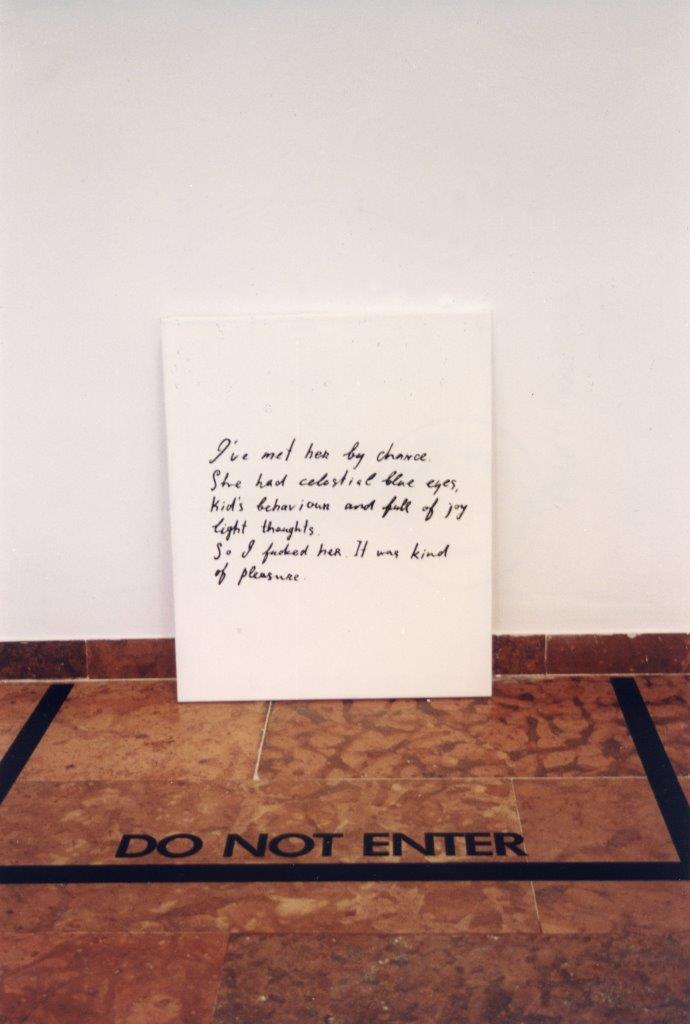 I've met her by chance.
She had celestial blue eyes,
kid's behaviour and full of joy
light thoughts.
So I fucked her. It was kind
of pleasure.
DO NOT ENTER